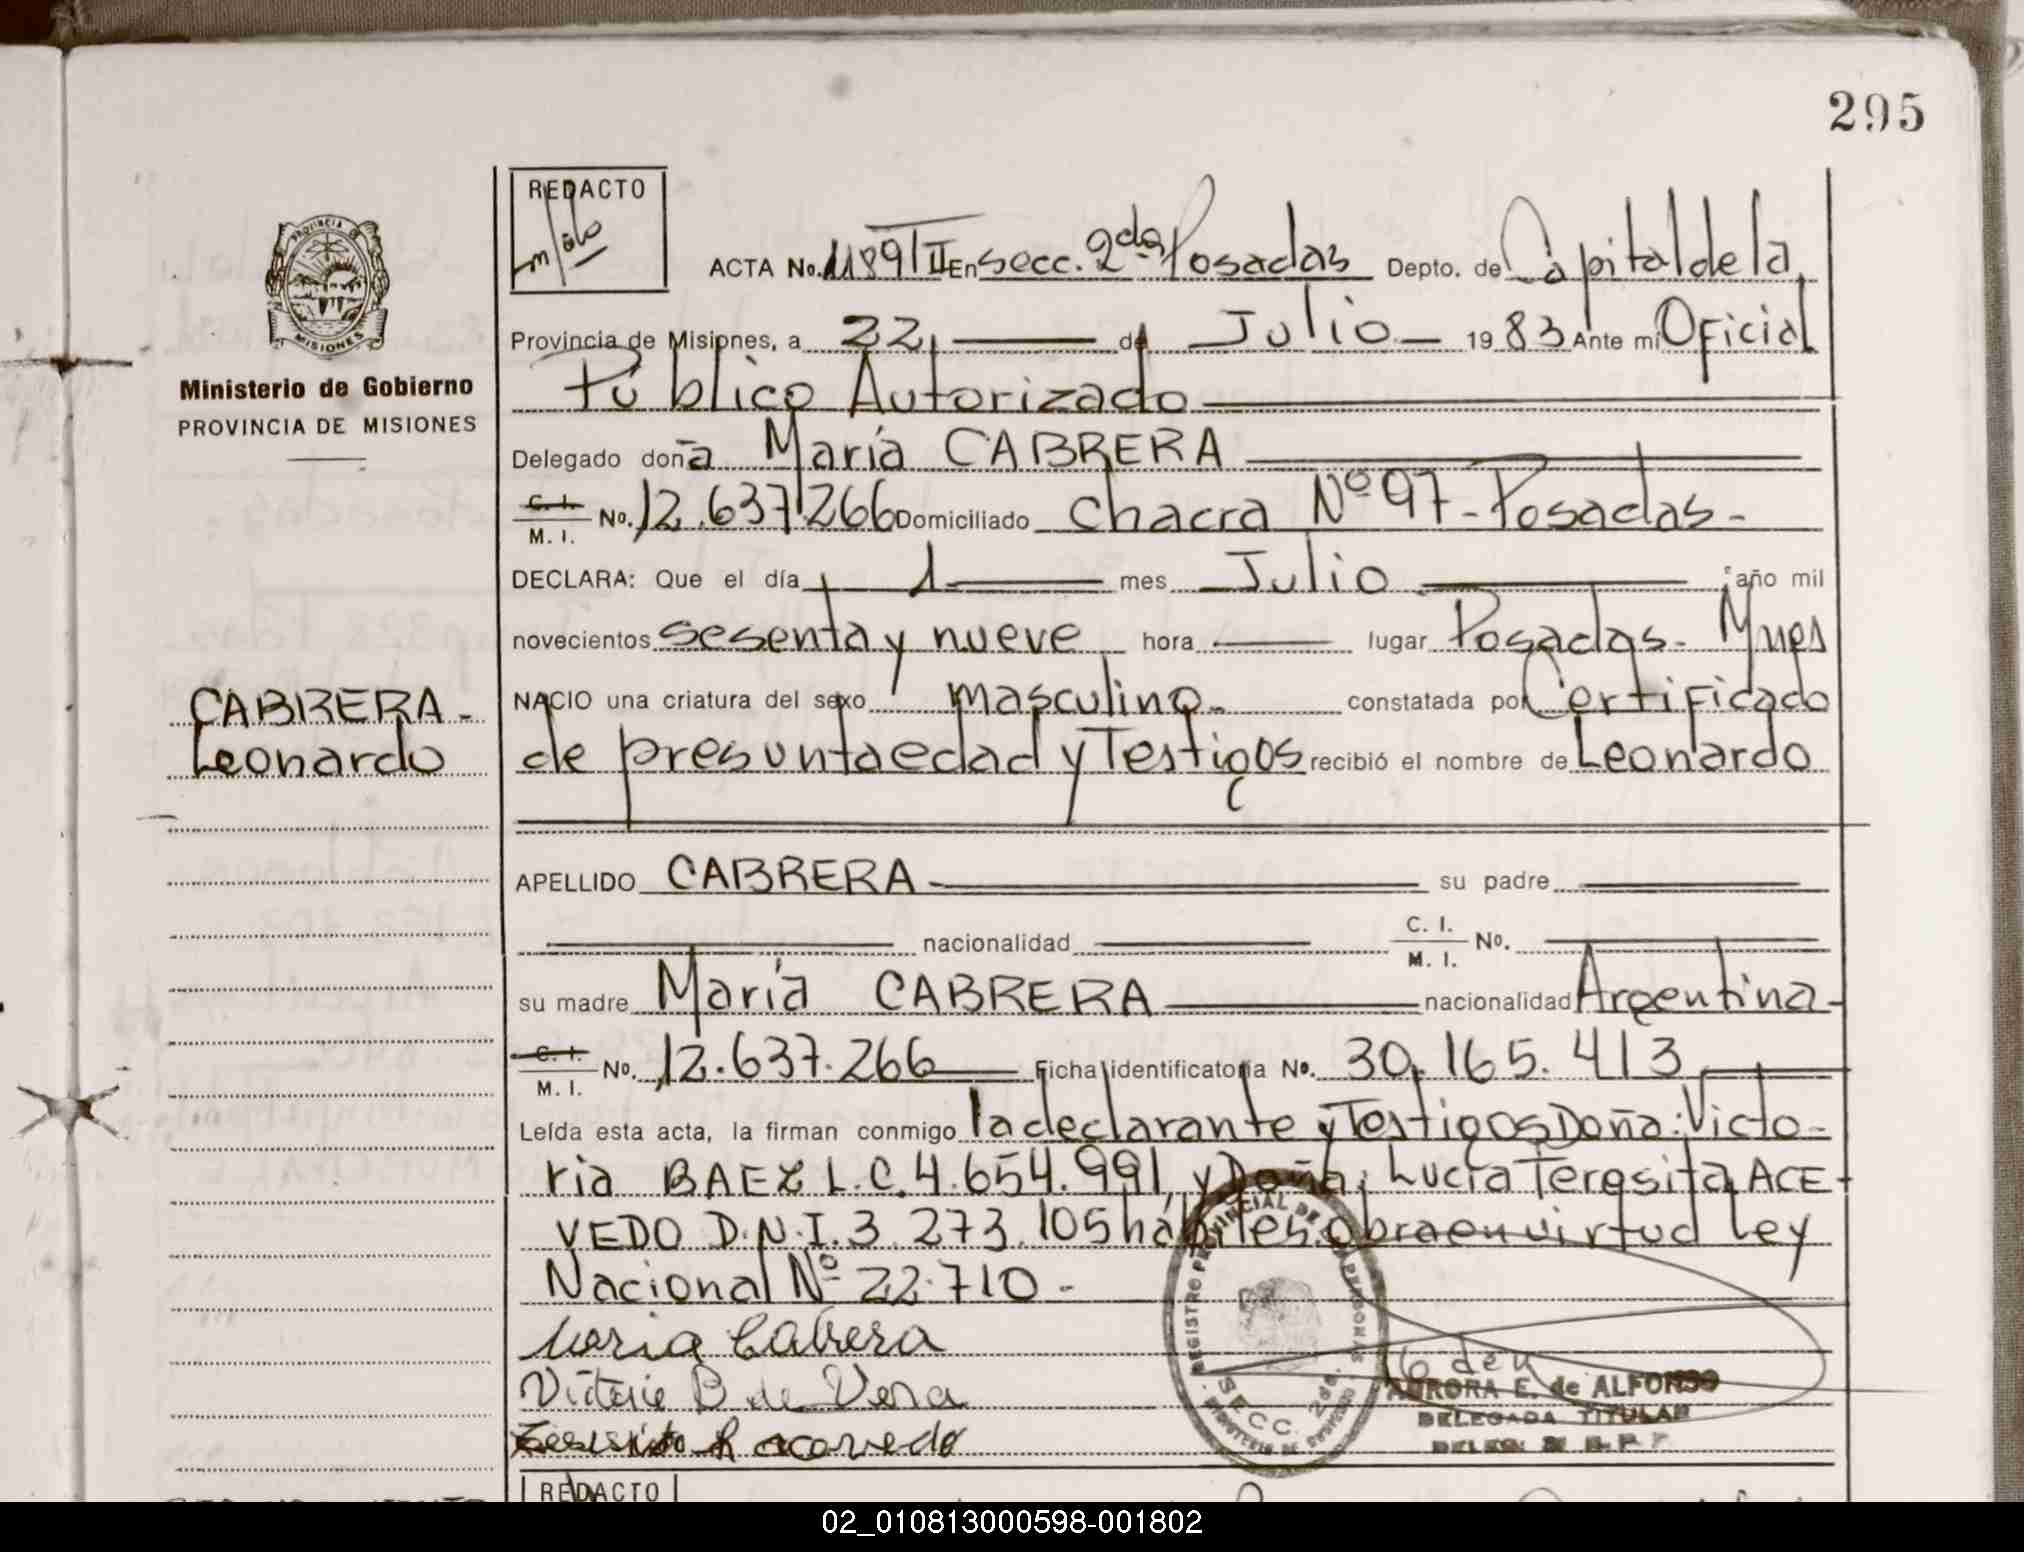 295
REDACTO
ACTA No. 1189/II En secc. 2da Posadas Depto. de Capital de la
PROVINCIA DE
MISIONES
Provincia de Misiones, a 22 de Julio 1983 Ante mi Oficial
Ministerio de Gobierno
PROVINCIA DE MISIONES
Público Autorizado
Delegado doña María CABRERA
C. I.
M. I. No. 12.637.266 Domiciliado chacra Nº 97 - Posadas -
DECLARA: Que el día 1 mes Julio año mil
novecientos sesenta y nueve hora lugar Posadas - Mnes
NACIO una criatura del sexo masculino - constatada por Certificado
CABRERA -
Leonardo
de presunta edad y Testigos recibió el nombre de Leonardo
APELLIDO CABRERA su padre
nacionalidad C. I. M. I. No.
su madre María CABRERA nacionalidad Argentina -
C. I.
M. I. No. 12.637.266 Ficha identificatoria No. 30.165.413
Leída esta acta, la firman conmigo la declarante y Testigos Doña: Victo-
ria BAEZ L.C. 4.654.991 y Doña: Lucía Teresita ACE-
VEDO D.N.I. 3.273.105 hábiles. obra en virtud Ley
Nacional Nº 22.710 -
María Cabrera
Victoria B de Vera
Teresita L acevedo
REGISTRO PROVINCIAL DE LAS PERSONAS
SECC. 2da.
AURORA E. de ALFONSO
DELEGADA TITULAR
REDACTO
02_010813000598-001802